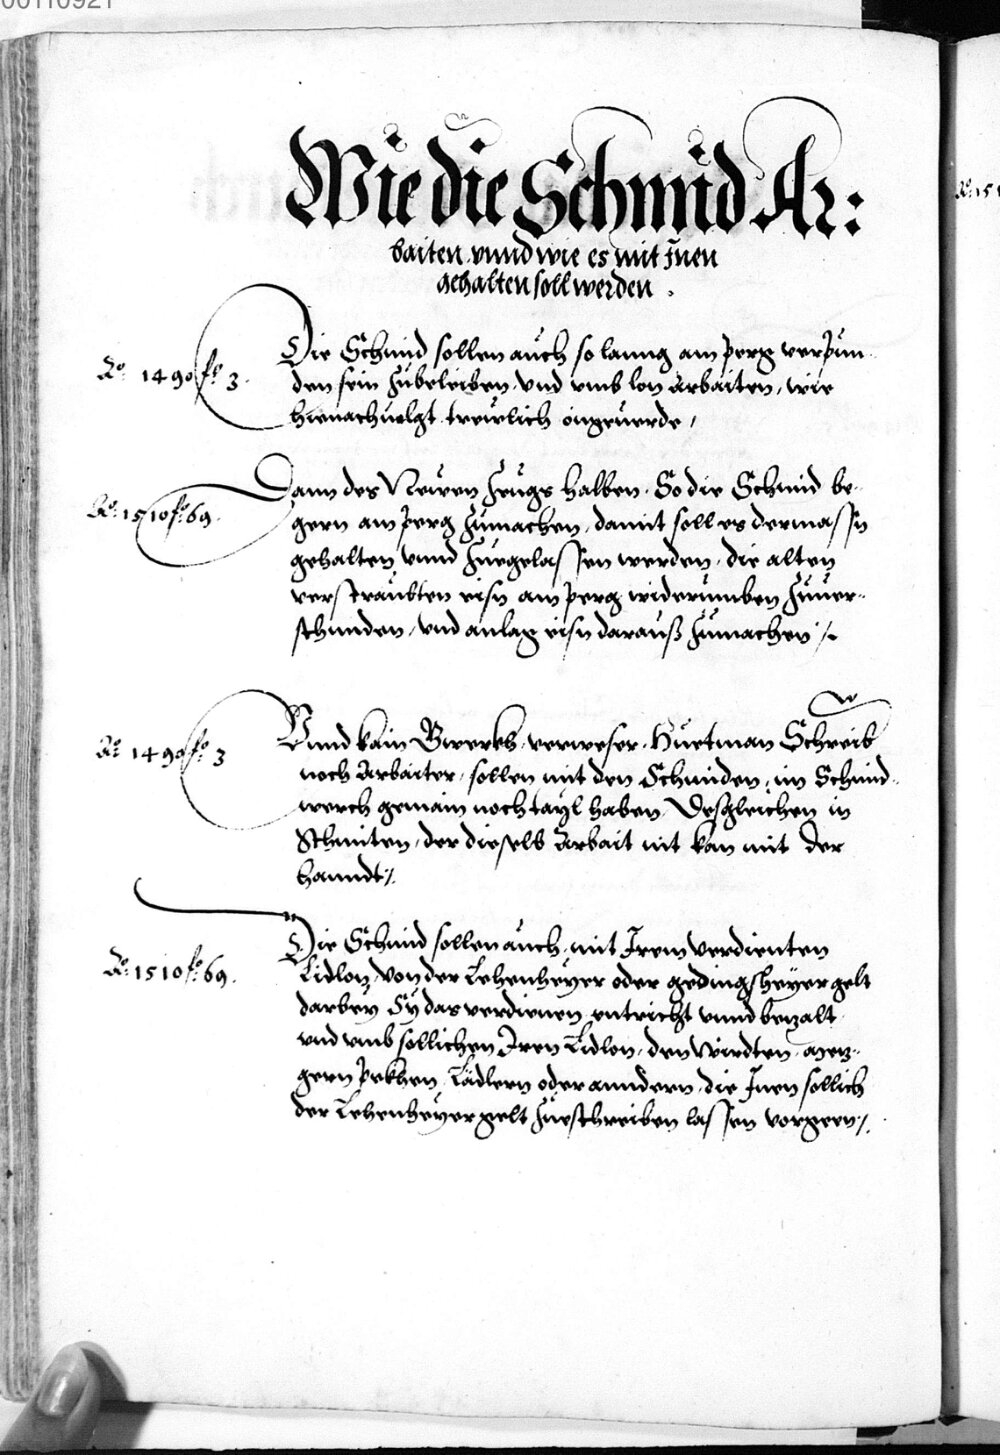 00110921
Wie die Schmid Ar:
baiten vnnd wie es mit Jnen
gehalten soll werden .
Ao. 1490 fo. 3.
Die Schmid sollen auch so lanng am perg verpun-
den sein zubeleiben, vnd vmb lon Arbaiten, wie
hienachuolgt trewlich ongeuerde,
Ao. 1510 fo. 69.
Dann des Newen zeugs halben. So die Schmid be-
gern am perg zumachen, damit soll es dermassn
gehalten vnnd zuegelassen werden, die alten
verstraubten eisn am perg widerumben zuuer-
schmiden, vnd anlag eisn darauß zumachen ./.
Ao. 1490 fo. 3
Vnnd kain Gwerkh, verweser, Huetman Schreib
noch Arbaiter, sollen mit den Schmiden, im Schmid-
werch gemain noch tayl haben, Desgleichen in
Schmiten, der dieselb Arbait nit kan mit der
hanndt ./.
Ao. 1510 fo. 69.
Die Schmid sollen auch, mit Irem verdienten
Lidlon, von der Lehenheyer oder gedingsheyer gelt
darbey Sy das verdienen, entricht vnnd bezalt
vnd vmb sollichen Iren Lidlon, den Wirdten, Mez-
gern pekhen, Lädlern oder anndern, die Jnen sollich
der Lehenheyer gelt zueschreiben lassen vorgeen ./.